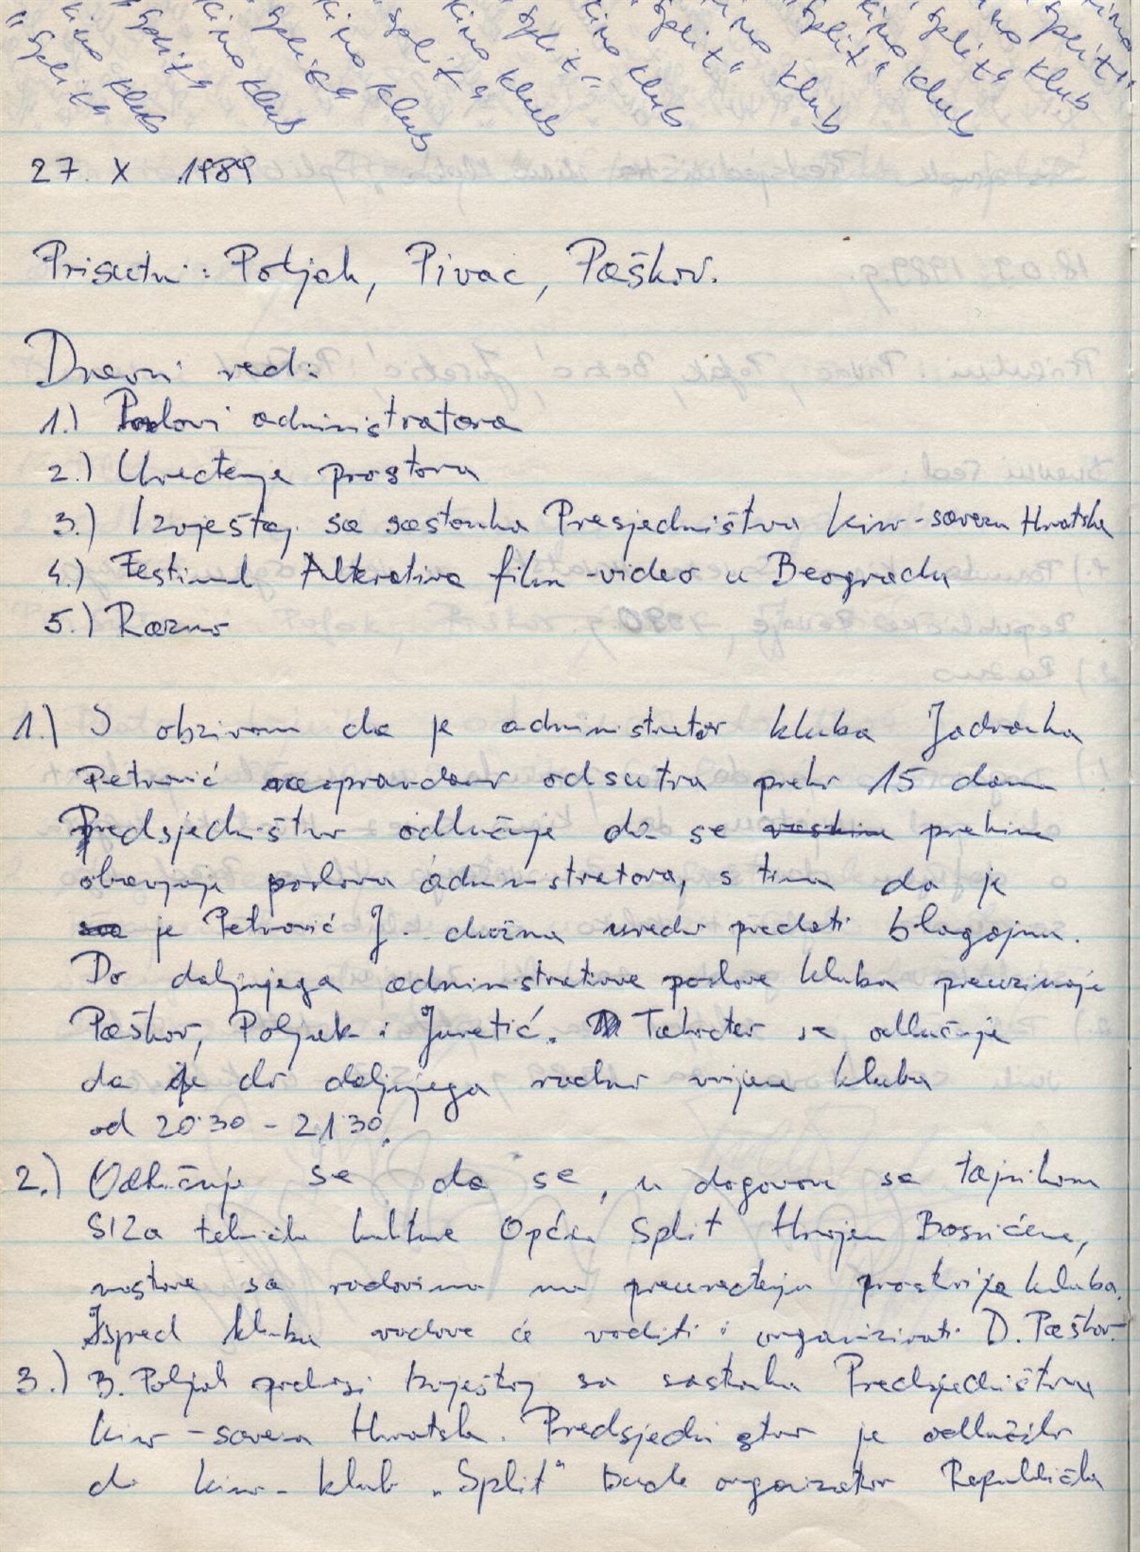 kino klub "Split" kino klub "Split" kino klub "Split" kino klub "Split" kino klub "Split" kino klub "Split" kino klub "Split" kino klub "Split"
27. X 1989
Prisutni: Poljak, Pivac, Paškov.
Dnevni red:
1.) Poslovi administratora
2.) Uređenje prostora
3.) Izvještaj sa sastanka Presjedništva kino-saveza Hrvatske
4.) Festival Alterativa film-video u Beogradu
5.) Razno
1.) S obzirom da je administrator kluba Jadranka
Petrović neopravdano odsutna preko 15 dana
Predsjedništvo odlučuje da se prekine
obavljanje poslova administratora, s time da je
je Petrović J. dužna uredno predati blagajnu.
Do daljnjega administrativne poslove kluba preuzimaju
Paškov, Poljak i Juretić. Također se odlučuje
da je do daljnjega radno vrijeme kluba
od 20 30 - 21 30.
2.) Odlučuje se da se, u dogovoru sa tajnikom
SIZa tehničke kulture Općine Split Hrvojem Bosnićem,
nastave sa radovima na preuređenju prostorija kluba.
Ispred kluba radove će voditi i organizirati D. Paškov.
3.) B. Poljak podnosi izvještaj sa sastanka Predsjedništva
kino-saveza Hrvatske. Predsjedništvo je odlučilo
da kino-klub "Split" bude organizator Republičke